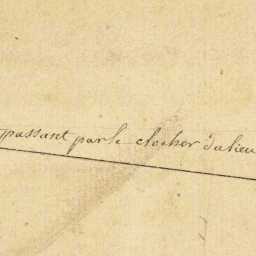 passant par le clocher du lieu